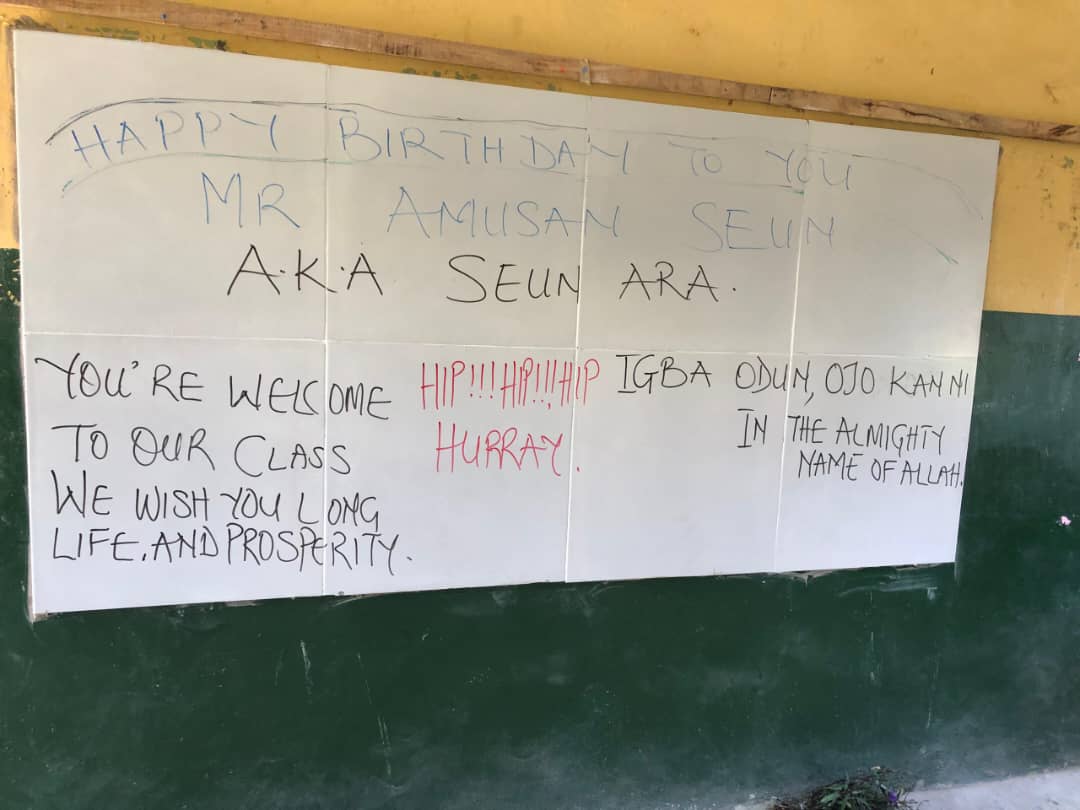 HAPPY BIRTHDAY TO YOU
MR AMUSAN SEUN
A.K.A SEUN ARA.
YOU'RE WELCOME
TO OUR CLASS
WE WISH YOU LONG
LIFE.AND PROSPERITY.
HIP!!!HIP!!!HIP
HURRAY.
IGBA ODUN, OJO KAN NI
IN THE ALMIGHTY
NAME OF ALLAH.